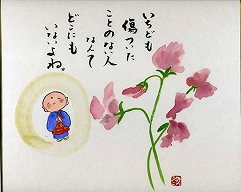 いちども
傷ついた
ことのない人
なんて
どこにも
いないよね。